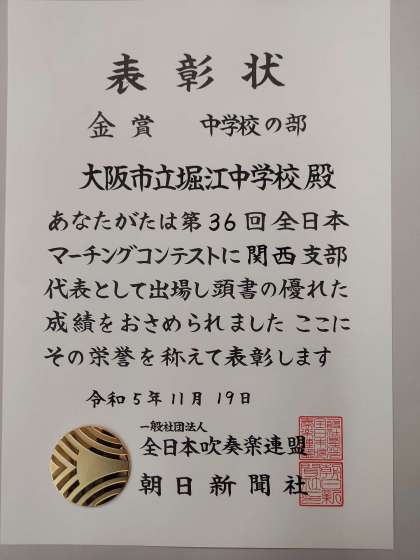 表彰状
金賞 中学校の部
大阪市立堀江中学校殿
あなたがたは第36回全日本
マーチングコンテストに関西支部
代表として出場し頭書の優れた
成績をおさめられました ここに
その栄誉を称えて表彰します
令和5年11月19日
一般社団法人
全日本吹奏楽連盟
朝日新聞社